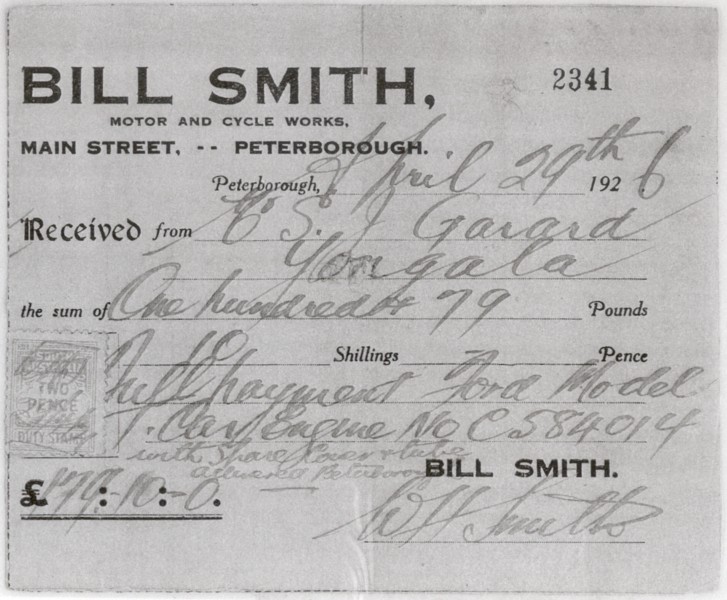 BILL SMITH, 2341
MOTOR AND CYCLE WORKS,
MAIN STREET, -- PETERBOROUGH.
Peterborough, April 29th 1926
Received from S. J Garard
Yongala
the sum of One hundred & 79 Pounds
10 Shillings Pence
Full payment Ford Model
T. Car Engine No C584014
with Spare Cover & tube
delivered Peterborough
TWO
PENCE
DUTY STAMP
BILL SMITH.
£179-10-0
W H Smith